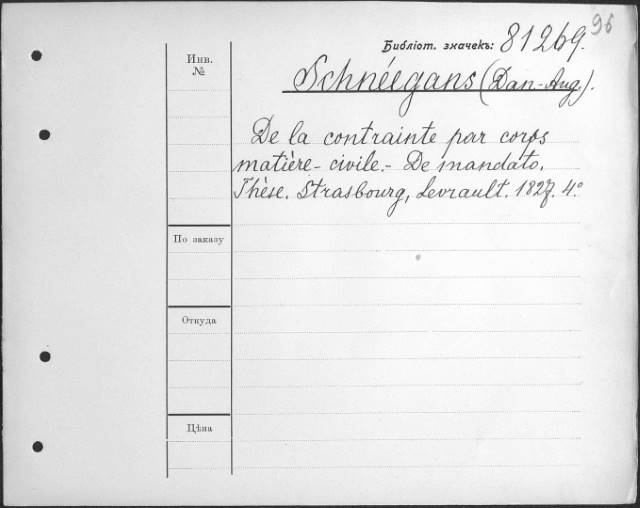 96
Библіот. значекъ: 81269.
Инв.
№
Schnéegans (Dan-Aug.).
De la contrainte par corps
matière-civile.- De mandato.
Thèse. Strasbourg, Levrault. 1827. 4º
По заказу
Откуда
Цѣна